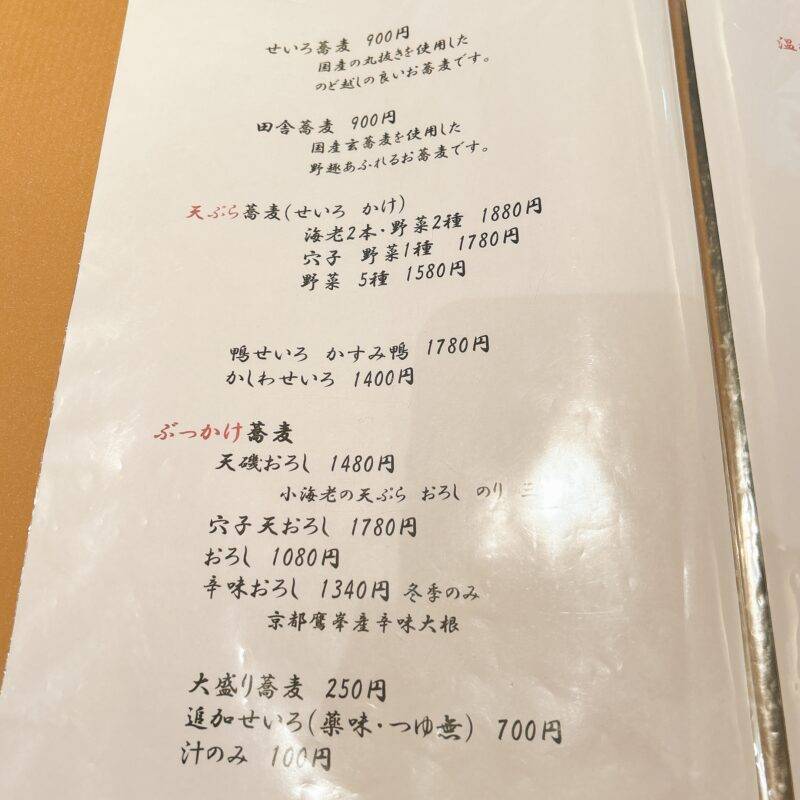 せいろ蕎麦 900円
国産の丸抜きを使用した
のど越しの良いお蕎麦です。
田舎蕎麦 900円
国産玄蕎麦を使用した
野趣あふれるお蕎麦です。
天ぷら蕎麦(せいろ かけ)
海老2本・野菜2種 1880円
穴子 野菜1種 1780円
野菜 5種 1580円
鴨せいろ かすみ鴨 1780円
かしわせいろ 1400円
ぶっかけ蕎麦
天磯おろし 1480円
小海老の天ぷら おろし のり 三
穴子天おろし 1780円
おろし 1080円
辛味おろし 1340円 冬季のみ
京都鷹峯産辛味大根
大盛り蕎麦 250円
追加せいろ(薬味・つゆ無) 700円
汁のみ 100円
温